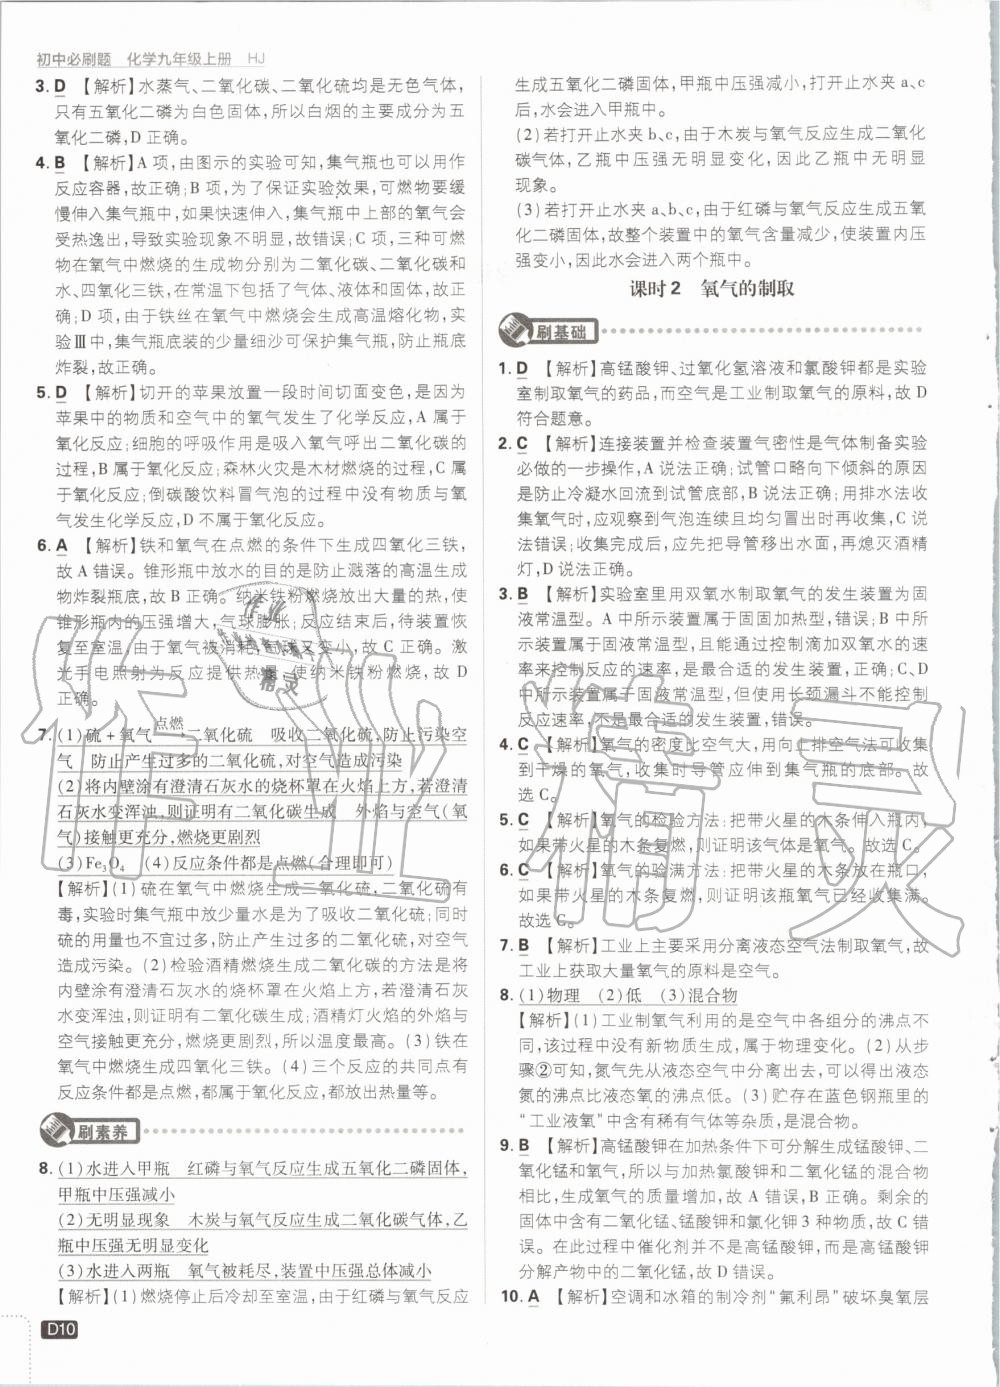 初中必刷题 化学九年级上册 HJ
3. D 【解析】水蒸气、二氧化碳、二氧化硫均是无色气体，
只有五氧化二磷为白色固体，所以白烟的主要成分为五
氧化二磷，D 正确。
4. B 【解析】A 项，由图示的实验可知，集气瓶也可以用作
反应容器，故正确；B 项，为了保证实验效果，可燃物要缓
慢伸入集气瓶中，如果快速伸入，集气瓶中上部的氧气会
受热逸出，导致实验现象不明显，故错误；C 项，三种可燃
物在氧气中燃烧的生成物分别为二氧化碳、二氧化碳和
水、四氧化三铁，在常温下包括了气体、液体和固体，故正
确；D 项，由于铁丝在氧气中燃烧会生成高温熔化物，实
验Ⅲ中，集气瓶底装的少量细沙可保护集气瓶，防止瓶底
炸裂，故正确。
5. D 【解析】切开的苹果放置一段时间切面变色，是因为
苹果中的物质和空气中的氧气发生了化学反应，A 属于
氧化反应；细胞的呼吸作用是吸入氧气呼出二氧化碳的
过程，B 属于氧化反应；森林火灾是木材燃烧的过程，C 属
于氧化反应；倒碳酸饮料冒气泡的过程中没有物质与氧
气发生化学反应，D 不属于氧化反应。
6. A 【解析】铁和氧气在点燃的条件下生成四氧化三铁，
故 A 错误。锥形瓶中放水的目的是防止溅落的高温生成
物炸裂瓶底，故 B 正确。纳米铁粉燃烧放出大量的热，使
锥形瓶内的压强增大，气球膨胀；反应结束后，待装置恢
复至室温，由于氧气被消耗，气球又变小，故 C 正确。激
光手电照射为反应提供热量，使纳米铁粉燃烧，故 D
正确。
7. (1)硫＋氧气 点燃→ 二氧化硫 吸收二氧化硫，防止污染空
气 防止产生过多的二氧化硫，对空气造成污染
(2)将内壁涂有澄清石灰水的烧杯罩在火焰上方，若澄清
石灰水变浑浊，则证明有二氧化碳生成 外焰与空气（氧
气）接触更充分，燃烧更剧烈
(3)Fe₃O₄ (4)反应条件都是点燃（合理即可）
【解析】(1)硫在氧气中燃烧生成二氧化硫，二氧化硫有
毒，实验时集气瓶中放少量水是为了吸收二氧化硫；同时
硫的用量也不宜过多，防止产生过多的二氧化硫，对空气
造成污染。(2)检验酒精燃烧生成二氧化碳的方法是将
内壁涂有澄清石灰水的烧杯罩在火焰上方，若澄清石灰
水变浑浊，则证明有二氧化碳生成；酒精灯火焰的外焰与
空气接触更充分，燃烧更剧烈，所以温度最高。(3)铁在
氧气中燃烧生成四氧化三铁。(4)三个反应的共同点有
反应条件都是点燃，都属于氧化反应，都放出热量等。
刷素养
8. (1)水进入甲瓶 红磷与氧气反应生成五氧化二磷固体，
甲瓶中压强减小
(2)无明显现象 木炭与氧气反应生成二氧化碳气体，乙
瓶中压强无明显变化
(3)水进入两瓶 氧气被耗尽，装置中压强总体减小
【解析】(1)燃烧停止后冷却至室温，由于红磷与氧气反应
生成五氧化二磷固体，甲瓶中压强减小，打开止水夹 a、c
后，水会进入甲瓶中。
(2)若打开止水夹 b、c，由于木炭与氧气反应生成二氧化
碳气体，乙瓶中压强无明显变化，因此乙瓶中无明显
现象。
(3)若打开止水夹 a、b、c，由于红磷与氧气反应生成五氧
化二磷固体，故整个装置中的氧气含量减少，使装置内压
强变小，因此水会进入两个瓶中。
课时 2 氧气的制取
刷基础
1. D 【解析】高锰酸钾、过氧化氢溶液和氯酸钾都是实验
室制取氧气的药品，而空气是工业制取氧气的原料，故 D
符合题意。
2. C 【解析】连接装置并检查装置气密性是气体制备实验
必做的一步操作，A 说法正确；试管口略向下倾斜的原因
是防止冷凝水回流到试管底部，B 说法正确；用排水法收
集氧气时，应观察到气泡连续且均匀冒出时再收集，C 说
法错误；收集完成后，应先把导管移出水面，再熄灭酒精
灯，D 说法正确。
3. B 【解析】实验室里用双氧水制取氧气的发生装置为固
液常温型。A 中所示装置属于固固加热型，错误；B 中所
示装置属于固液常温型，且能通过控制滴加双氧水的速
率来控制反应的速率，是最合适的发生装置，正确；C、D
中所示装置属于固液常温型，但使用长颈漏斗不能控制
反应速率，不是最合适的发生装置，错误。
4. C 【解析】氧气的密度比空气大，用向上排空气法可收集
到干燥的氧气，收集时导管应伸到集气瓶的底部。故
选 C。
5. C 【解析】氧气的检验方法：把带火星的木条伸入瓶内，
如果带火星的木条复燃，则证明该气体是氧气。故选 C。
6. C 【解析】氧气的验满方法：把带火星的木条放在瓶口，
如果带火星的木条复燃，则证明该瓶氧气已经收集满。
故选 C。
7. B 【解析】工业上主要采用分离液态空气法制取氧气，故
工业上获取大量氧气的原料是空气。
8. (1)物理 (2)低 (3)混合物
【解析】(1)工业制氧气利用的是空气中各组分的沸点不
同，该过程中没有新物质生成，属于物理变化。(2)从步
骤②可知，氮气先从液态空气中分离出去，可以得出液态
氮的沸点比液态氧的沸点低。(3)贮存在蓝色钢瓶里的
“工业液氧”中含有稀有气体等杂质，是混合物。
9. B 【解析】高锰酸钾在加热条件下可分解生成锰酸钾、二
氧化锰和氧气，所以与加热氯酸钾和二氧化锰的混合物
相比，生成氧气的质量增加，故 A 错误，B 正确。剩余的
固体中含有二氧化锰、锰酸钾和氯化钾 3 种物质，故 C 错
误。在此过程中催化剂并不是高锰酸钾，而是高锰酸钾
分解产物中的二氧化锰，故 D 错误。
10. A 【解析】空调和冰箱的制冷剂“氟利昂”破坏臭氧层
D10
作业精灵